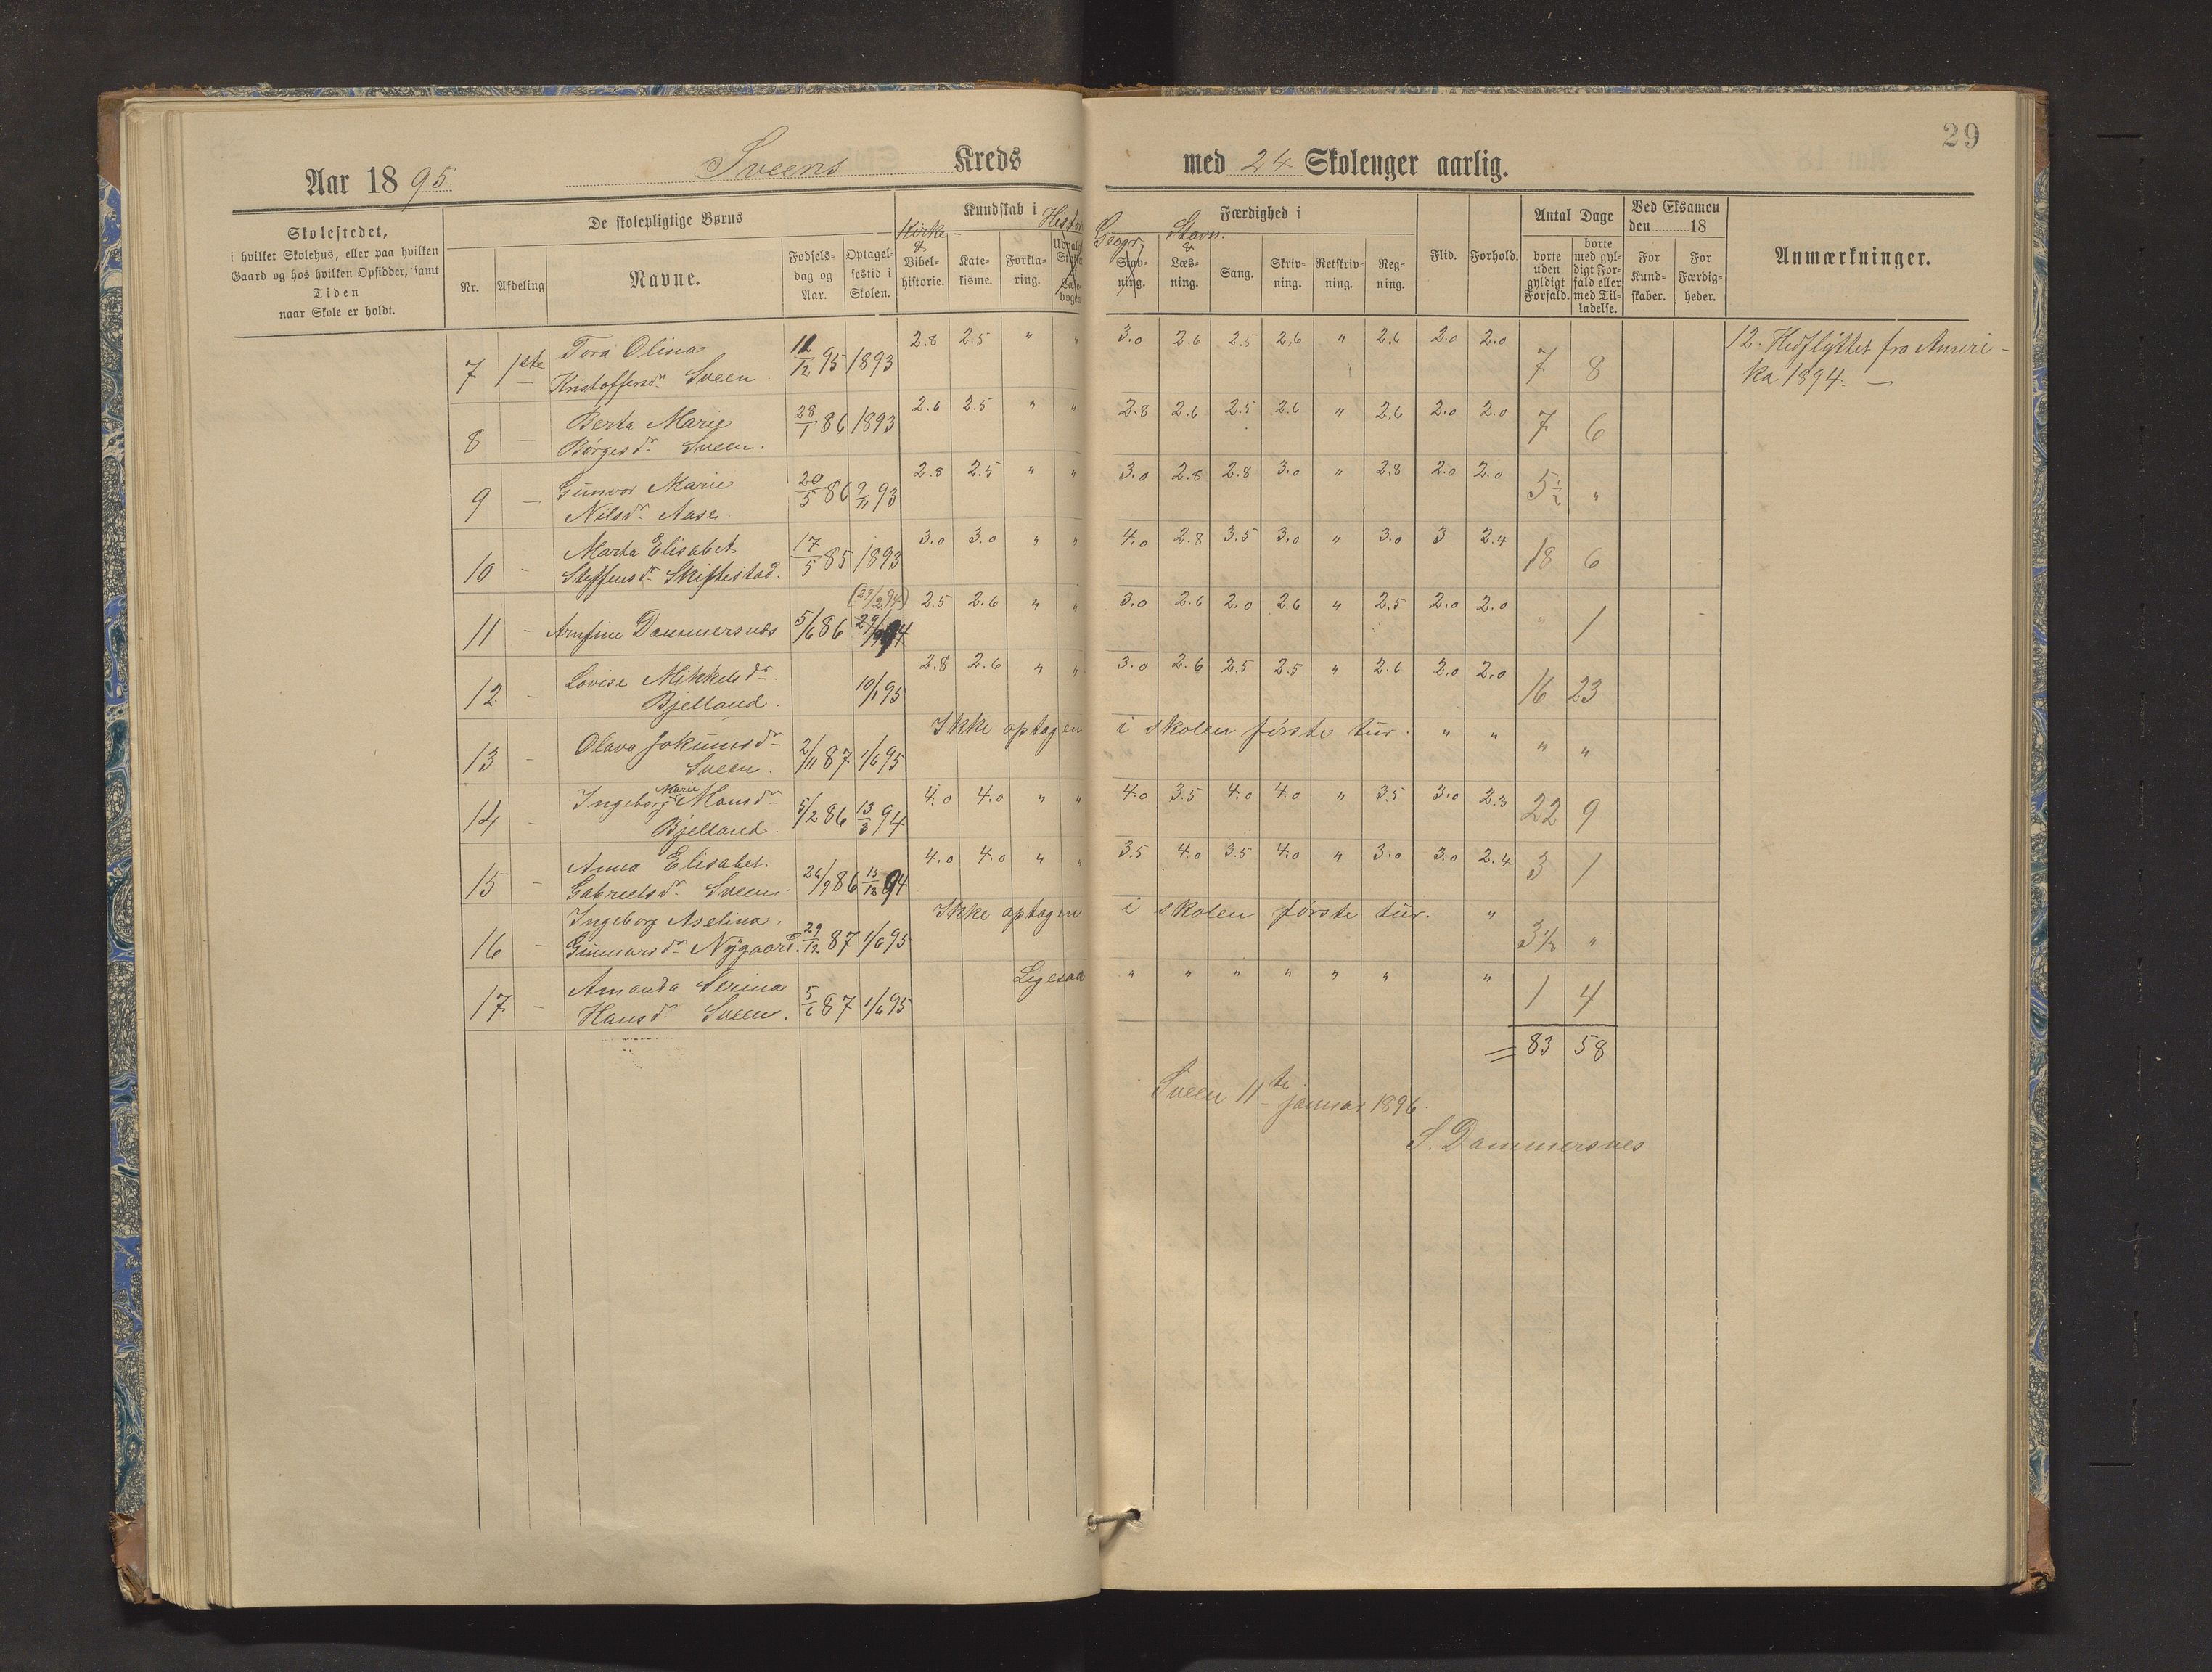 29
Aar 1895. Sveens Kreds med 24 Skolenger aarlig.
Skolestedet,
i hvilket Skolehus, eller paa hvilken
Gaard og hos hvilken Opsidder, samt
Tiden
naar Skole er holdt.
De skolepligtige Børns
Nr. Afdeling Navne. Fødsels-dag og Aar. Optagel-sestid i Skolen.
Kundskab i
Kirke- & Bibel-historie. Kate-kisme. Forkla-ring. Histor
Færdighed i
Geogr. Stavn. & Læs-ning. Sang. Skriv-ning. Retskriv-ning. Reg-ning.
Flid. Forhold.
Antal Dage
borte uden gyldigt Forfald. borte med gyl-digt For-fald eller med Til-ladelse.
Ved Eksamen den 18
For Kund-skaber. For Færdig-heder.
Anmærkninger.
7 1ste Tora Olina Kristoffersdr Sveen. 12/12 95 1893 2.8 2.5 " " 3.0 2.6 2.5 2.6 " 2.6 2.0 2.0 7 8
12. Hidflyttet fra Ameri-
ka 1894. —
8 — Berta Marie Børgesdr Sveen. 28/1 86 1893 2.6 2.5 " " 2.8 2.6 2.5 2.6 " 2.6 2.0 2.0 7 6
9 — Gunvor Marie Nilsdr Aase. 20/5 86 9/11 93 2.8 2.5 " " 3.0 2.8 2.8 3.0 " 2.8 2.0 2.0 5½ "
10 - Marta Elisabet Steffensdr Skiftestad. 17/5 85 1893 3.0 3.0 " " 4.0 2.8 3.5 3.0 " 3.0 3 2.4 18 6
11 - Arnfine Dammersnes 5/6 86 (29/2 94) 2.5 2.6 " " 3.0 2.6 2.0 2.6 " 2.5 2.0 2.0 " 1
12 - Lovise Mikkelsdr Bjelland. 10/1 95 2.8 2.6 " " 3.0 2.6 2.5 2.5 " 2.6 2.0 2.0 16 23
13 - Olava Jokumsdr Sveen. 2/11 87 1/6 95 Ikke optagen i skolen første tur. " " " "
14 - Ingeborg Marie Monsdr Bjelland. 5/2 86 13/3 94 4.0 4.0 " " 4.0 3.5 4.0 4.0 " 3.5 3.0 2.3 22 9
15 - Anna Elisabet Gabrielsdr Sveen. 26/9 86 15/12 94 4.0 4.0 " " 3.5 4.0 3.5 4.0 " 3.0 3.0 2.4 3 1
16 - Ingeborg Aselina. Gunnarsdr Nygaard. 29/12 87 1/6 95 Ikke optagen i skolen første tur. " 3½ "
17 - Amanda Serina Hansdr Sveen. 5/6 87 1/6 95 Ligesaa " " " " " " " 1 4
= 83 58
Sveen 11te januar 1896.
S. Dammersnes